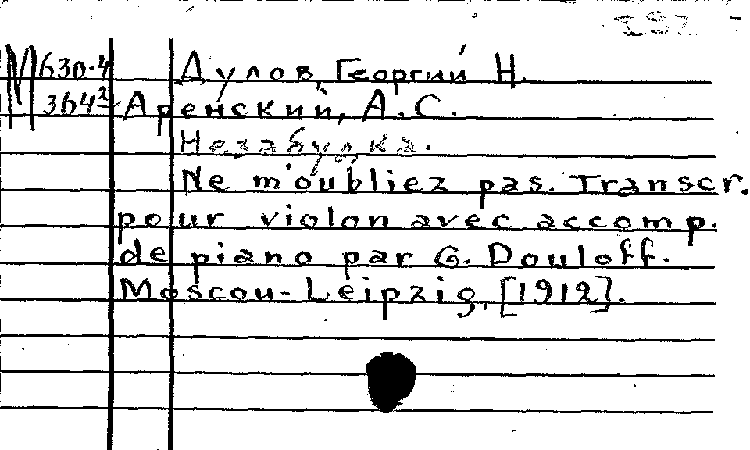 М 630-4 Дулов, Георгий Н.
364² Аренский, А.С.
Незабудка.
Ne m'oubliez pas. Transcr.
pour violon avec accomp.
de piano par G. Douloff.
Moscou-Leipzig, [1912].